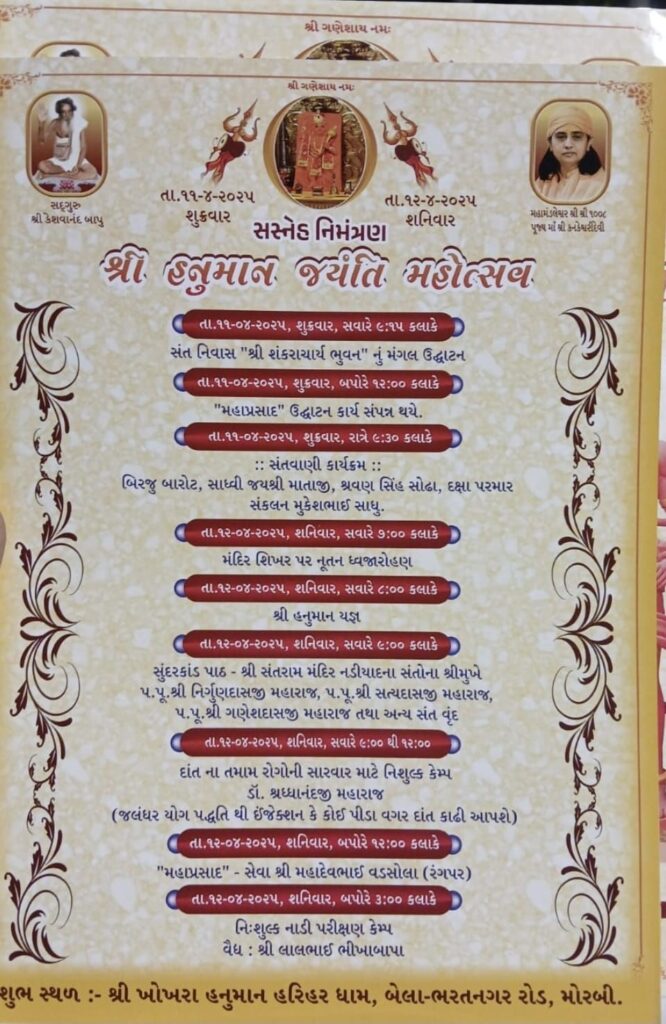 શ્રી ગણેશાય નમઃ
શ્રી ગણેશાય નમઃ
સદ્‌ગુરુ
શ્રી કેશવાનંદ બાપુ
તા.૧૧-૪-૨૦૨૫
શુક્રવાર
તા.૧૨-૪-૨૦૨૫
શનિવાર
મહામંડલેશ્વર શ્રી શ્રી ૧૦૦૮
પૂજ્ય માઁ શ્રી કનકેશ્વરીદેવી
સસ્નેહ નિમંત્રણ
શ્રી હનુમાન જયંતિ મહોત્સવ
તા.૧૧-૦૪-૨૦૨૫, શુક્રવાર, સવારે ૯:૧૫ કલાકે
સંત નિવાસ "શ્રી શંકરાચાર્ય ભુવન" નું મંગલ ઉદ્ઘાટન
તા.૧૧-૦૪-૨૦૨૫, શુક્રવાર, બપોરે ૧૨:૦૦ કલાકે
"મહાપ્રસાદ" ઉદ્ઘાટન કાર્ય સંપન્ન થયે.
તા.૧૧-૦૪-૨૦૨૫, શુક્રવાર, રાત્રે ૯:૩૦ કલાકે
:: સંતવાણી કાર્યક્રમ ::
બિરજુ બારોટ, સાધ્વી જયશ્રી માતાજી, શ્રવણ સિંહ સોઢા, દક્ષા પરમાર
સંકલન મુકેશભાઈ સાધુ.
તા.૧૨-૦૪-૨૦૨૫, શનિવાર, સવારે ૭:૦૦ કલાકે
મંદિર શિખર પર નૂતન ધ્વજારોહણ
તા.૧૨-૦૪-૨૦૨૫, શનિવાર, સવારે ૮:૦૦ કલાકે
શ્રી હનુમાન યજ્ઞ
તા.૧૨-૦૪-૨૦૨૫, શનિવાર, સવારે ૯:૦૦ કલાકે
સુંદરકાંડ પાઠ - શ્રી સંતરામ મંદિર નડીયાદના સંતોના શ્રીમુખે
પ.પૂ.શ્રી નિર્ગુણદાસજી મહારાજ, પ.પૂ.શ્રી સત્યદાસજી મહારાજ,
પ.પૂ.શ્રી ગણેશદાસજી મહારાજ તથા અન્ય સંત વૃંદ
તા.૧૨-૦૪-૨૦૨૫, શનિવાર, સવારે ૯:૦૦ થી ૧૨:૦૦
દાંત ના તમામ રોગોની સારવાર માટે નિશુલ્ક કેમ્પ
ડૉ. શ્રધ્ધાનંદજી મહારાજ
(જલંધર યોગ પદ્ધતિ થી ઈંજેક્શન કે કોઈ પીડા વગર દાંત કાઢી આપશે)
તા.૧૨-૦૪-૨૦૨૫, શનિવાર, બપોરે ૧૨:૦૦ કલાકે
"મહાપ્રસાદ" - સેવા શ્રી મહાદેવભાઈ વડસોલા (રંગપર)
તા.૧૨-૦૪-૨૦૨૫, શનિવાર, બપોરે ૩:૦૦ કલાકે
નિઃશુલ્ક નાડી પરીક્ષણ કેમ્પ
વૈધ : શ્રી લાલભાઈ ભીખાબાપા
શુભ સ્થળ :- શ્રી ખોખરા હનુમાન હરિહર ધામ, બેલા-ભરતનગર રોડ, મોરબી.